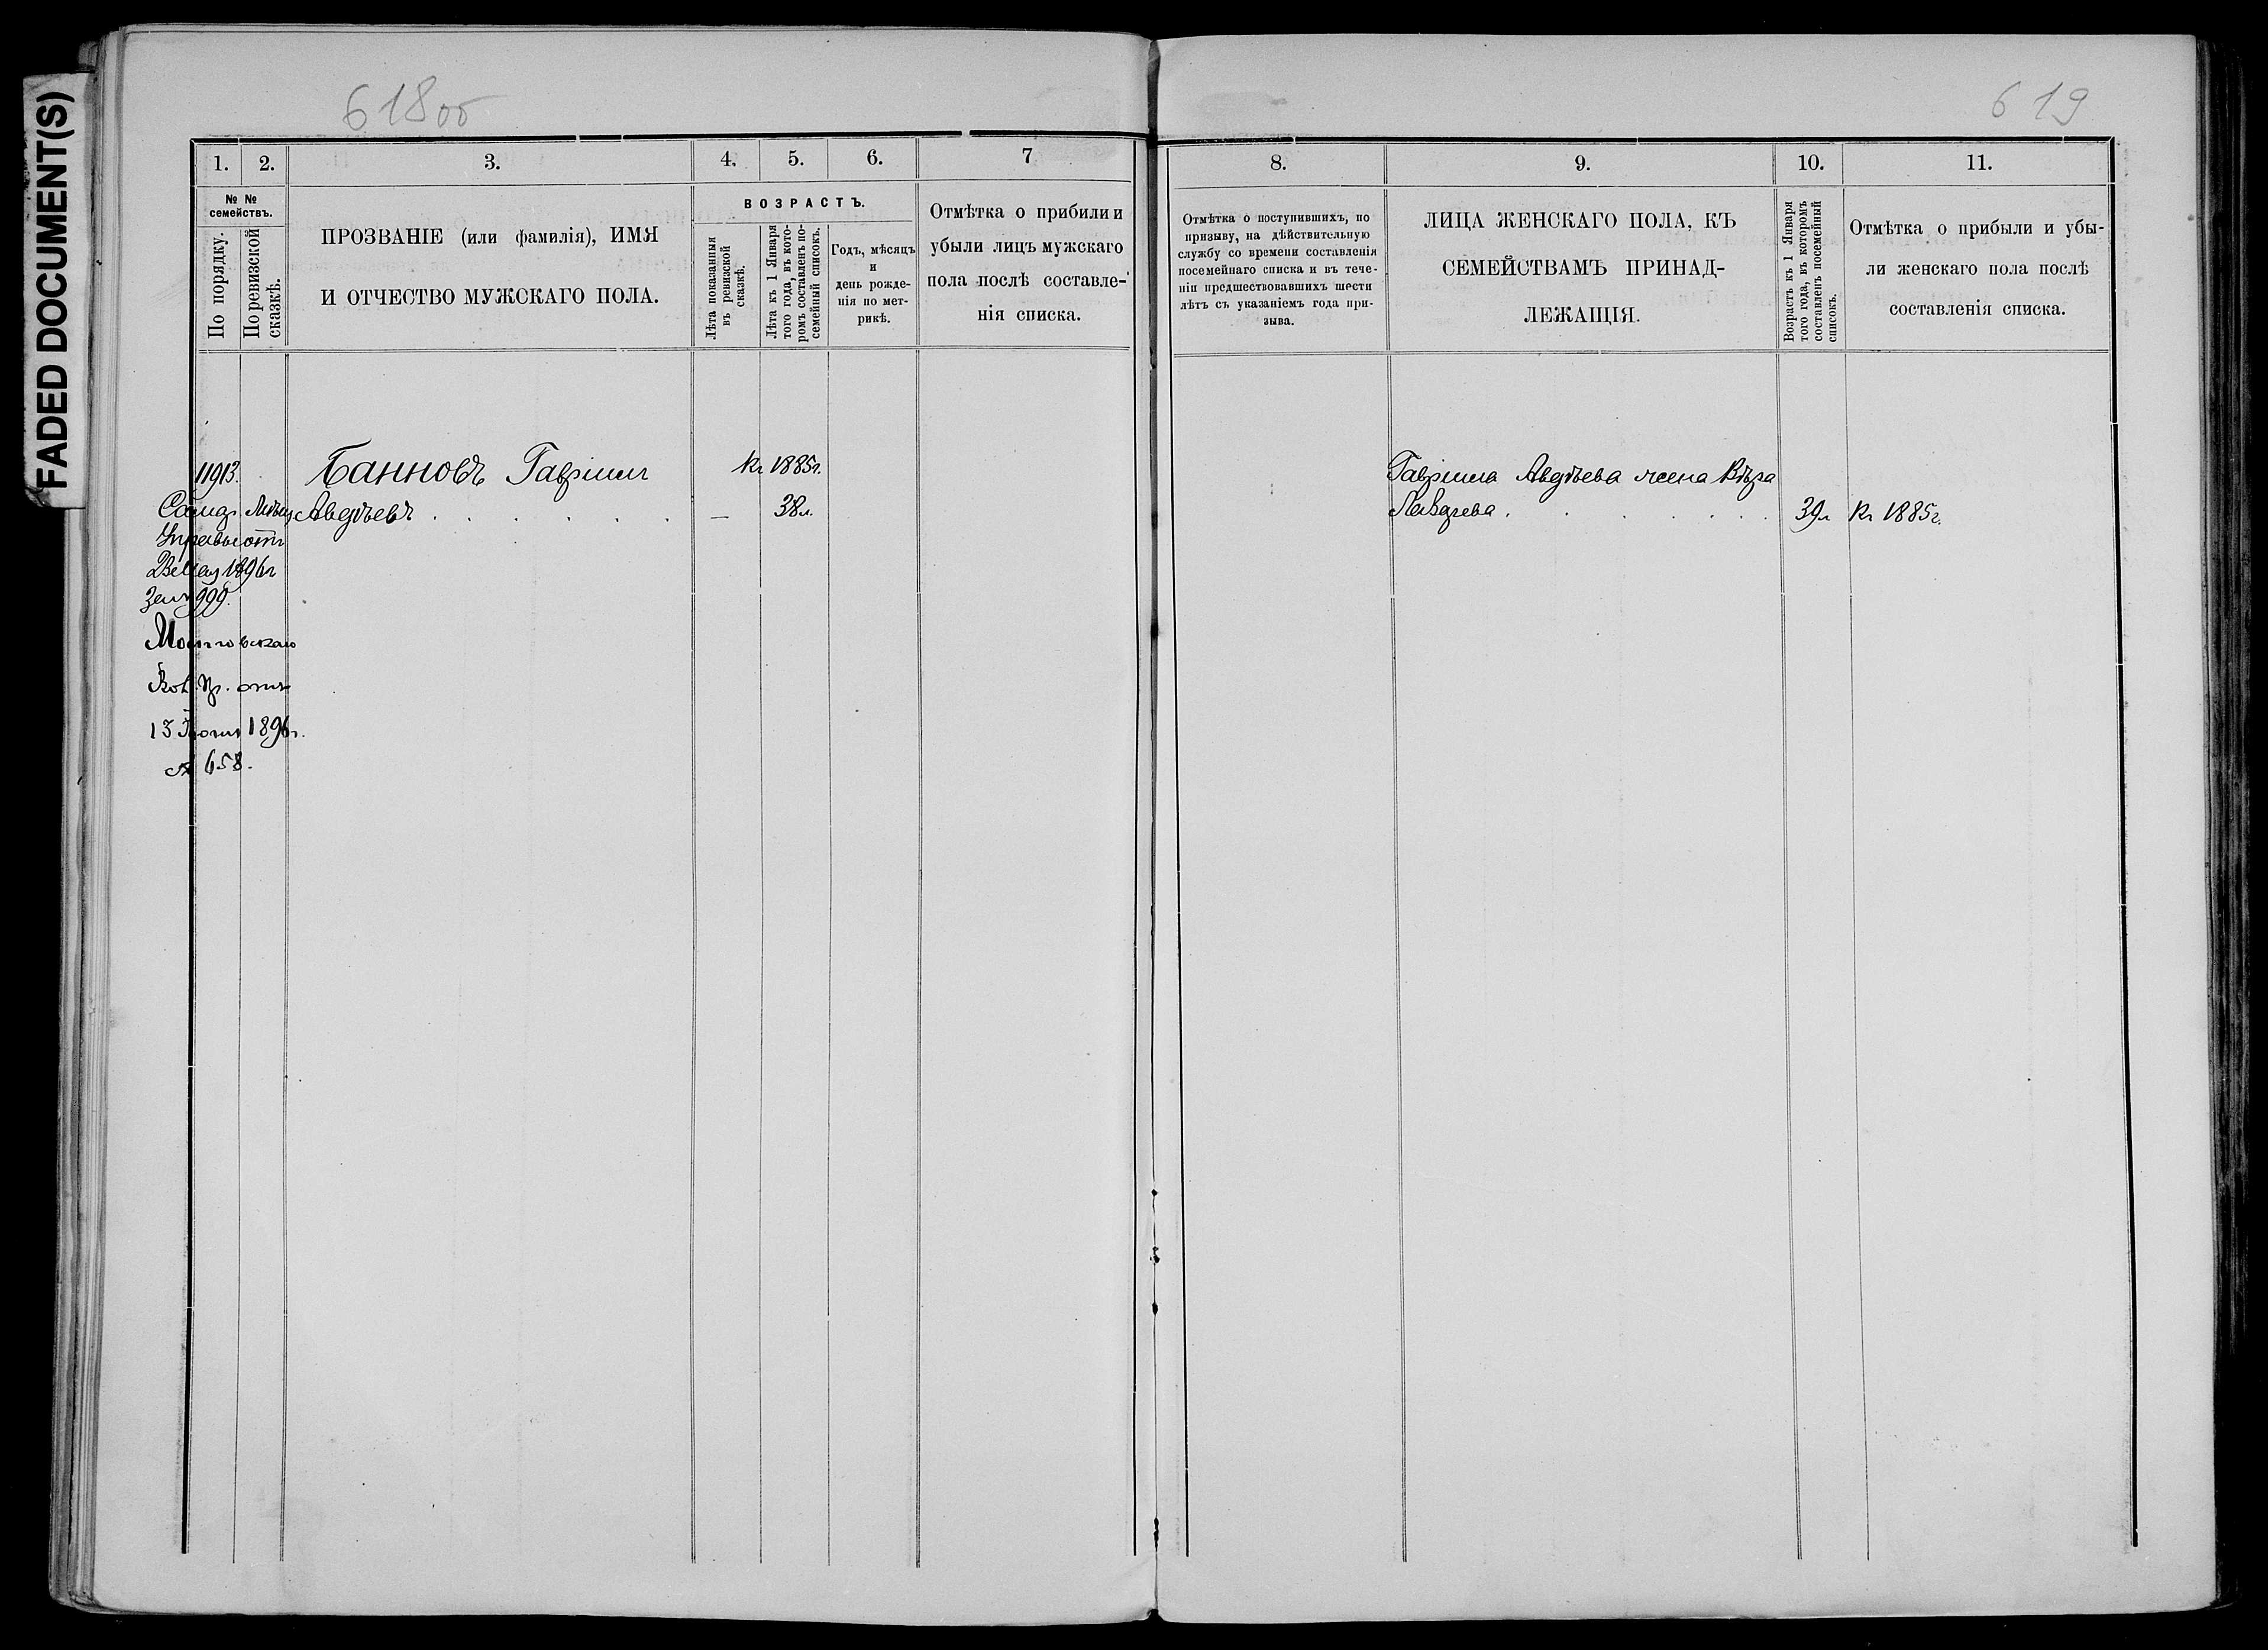 FADED DOCUMENT(S)
618об
619
1.
2.
3.
4.
5.
6.
7
№ №
семействъ.
По порядку.
По ревизской
сказкѣ.
ПРОЗВАНІЕ (или фамилія), ИМЯ
И ОТЧЕСТВО МУЖСКАГО ПОЛА.
ВОЗРАСТЪ.
Лѣта показанныя
въ ревизской
сказкѣ.
Лѣта къ 1 Января
того года, въ кото-
ромъ составленъ по-
семейный списокъ.
Годъ, мѣсяцъ
и
день рожде-
нія по мет-
рикѣ.
Отмѣтка о прибыли и
убыли лицъ мужскаго
пола послѣ составле-
нія списка.
11913.
Банновъ Гавріилъ
Къ 1885г.
Авдѣевъ
—
38л.
Управы отъ
1896г
999.
отъ
13 Іюня 1896г.
№ 658.
8.
9.
10.
11.
Отмѣтка о поступившихъ, по
призыву, на дѣйствительную
службу со времени составленія
посемейнаго списка и въ тече-
ніи предшествовавшихъ шести
лѣтъ съ указаніемъ года при-
зыва.
ЛИЦА ЖЕНСКАГО ПОЛА, КЪ
СЕМЕЙСТВАМЪ ПРИНАД-
ЛЕЖАЩІЯ.
Возрастъ къ 1 Января
того года, въ которомъ
составленъ посемейный
списокъ.
Отмѣтка о прибыли и убы-
ли женскаго пола послѣ
составленія списка.
Гавріила Авдѣева жена Вѣра
39л Къ 1885г.